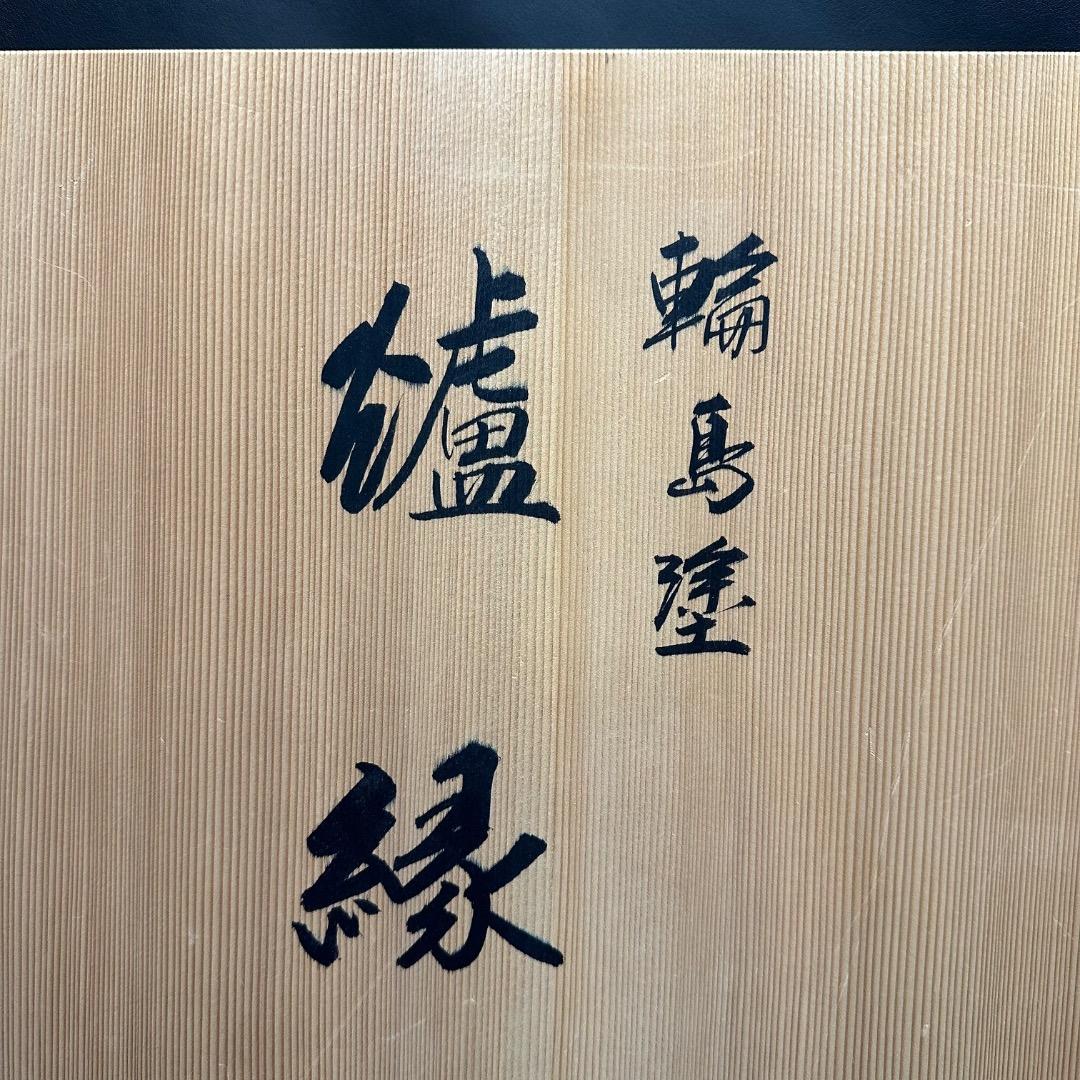 輪島塗
爐縁